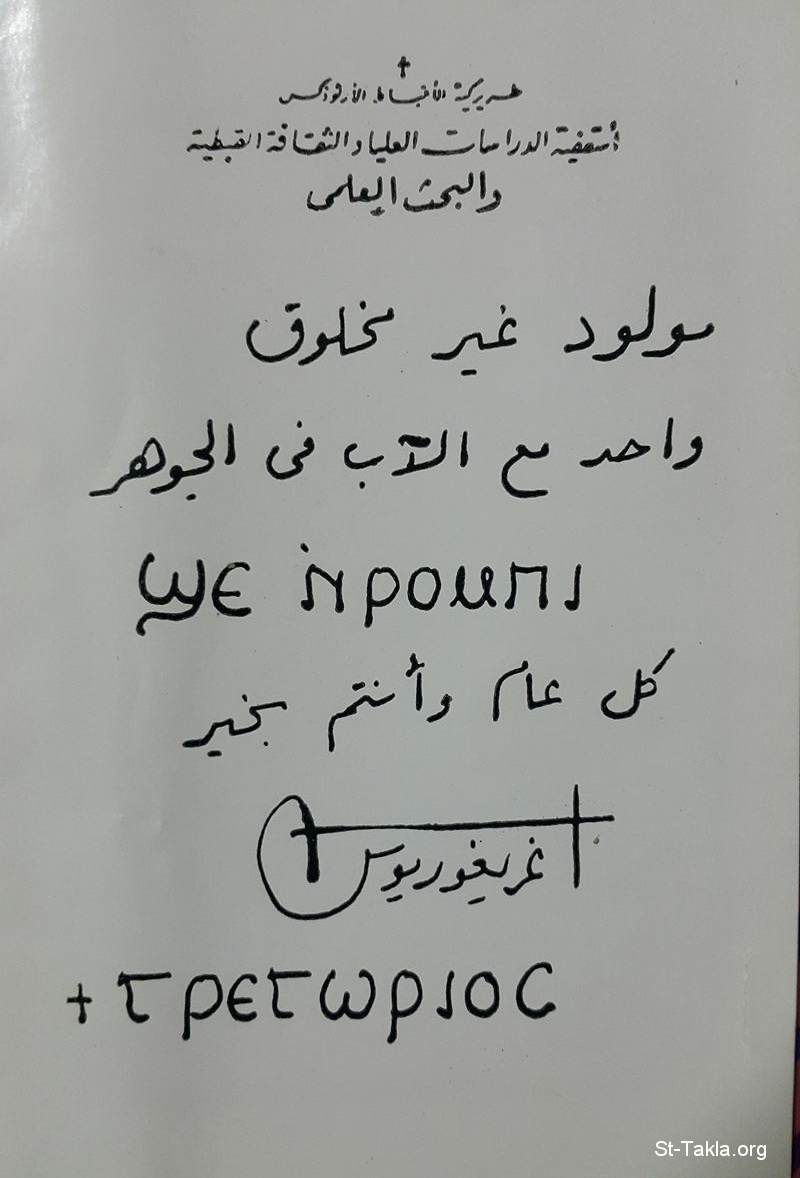 ✝
بطريركية الأقباط الأرثوذكس
أسقفية الدراسات العليا والثقافة القبطية
والبحث العلمى
مولود غير مخلوق
واحد مع الآب فى الجوهر
ϣⲉ ⲛ̀ⲣⲟⲙⲡⲓ
كل عام وأنتم بخير
غريغوريوس
+ ⲅⲣⲉⲅⲱⲣⲓⲟⲥ
St-Takla.org